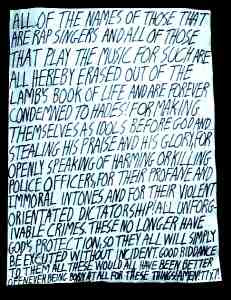 ALL OF THE NAMES OF THOSE THAT
ARE RAP SINGERS AND ALL OF THOSE
THAT PLAY THE MUSIC FOR SUCH ARE
ALL HEREBY ERASED OUT OF THE
LAMB'S BOOK OF LIFE AND ARE FOREVER
CONDEMNED TO HADES! FOR MAKING
THEMSELVES AS IDOLS BEFORE GOD AND
STEALING HIS PRAISE AND HIS GLORY, FOR
OPENLY SPEAKING OF HARMING OR KILLING
POLICE OFFICERS, FOR THEIR PROFANE AND
IMMORAL INTONES AND FOR THEIR VIOLENT
ORIENTATED DICTATORSHIP! ALL UNFORG-
IVABLE CRIMES THESE NO LONGER HAVE
GOD'S PROTECTION, SO THEY ALL WILL SIMPLY
BE EXCUTED WITHOUT INCIDENT. GOOD RIDDANCE
TO THEM ALL THESE WOULD ALL HAVE BEEN BETTER
OF NEVER BEING BODY AT ALL FOR THESE THINGS! AMEN.